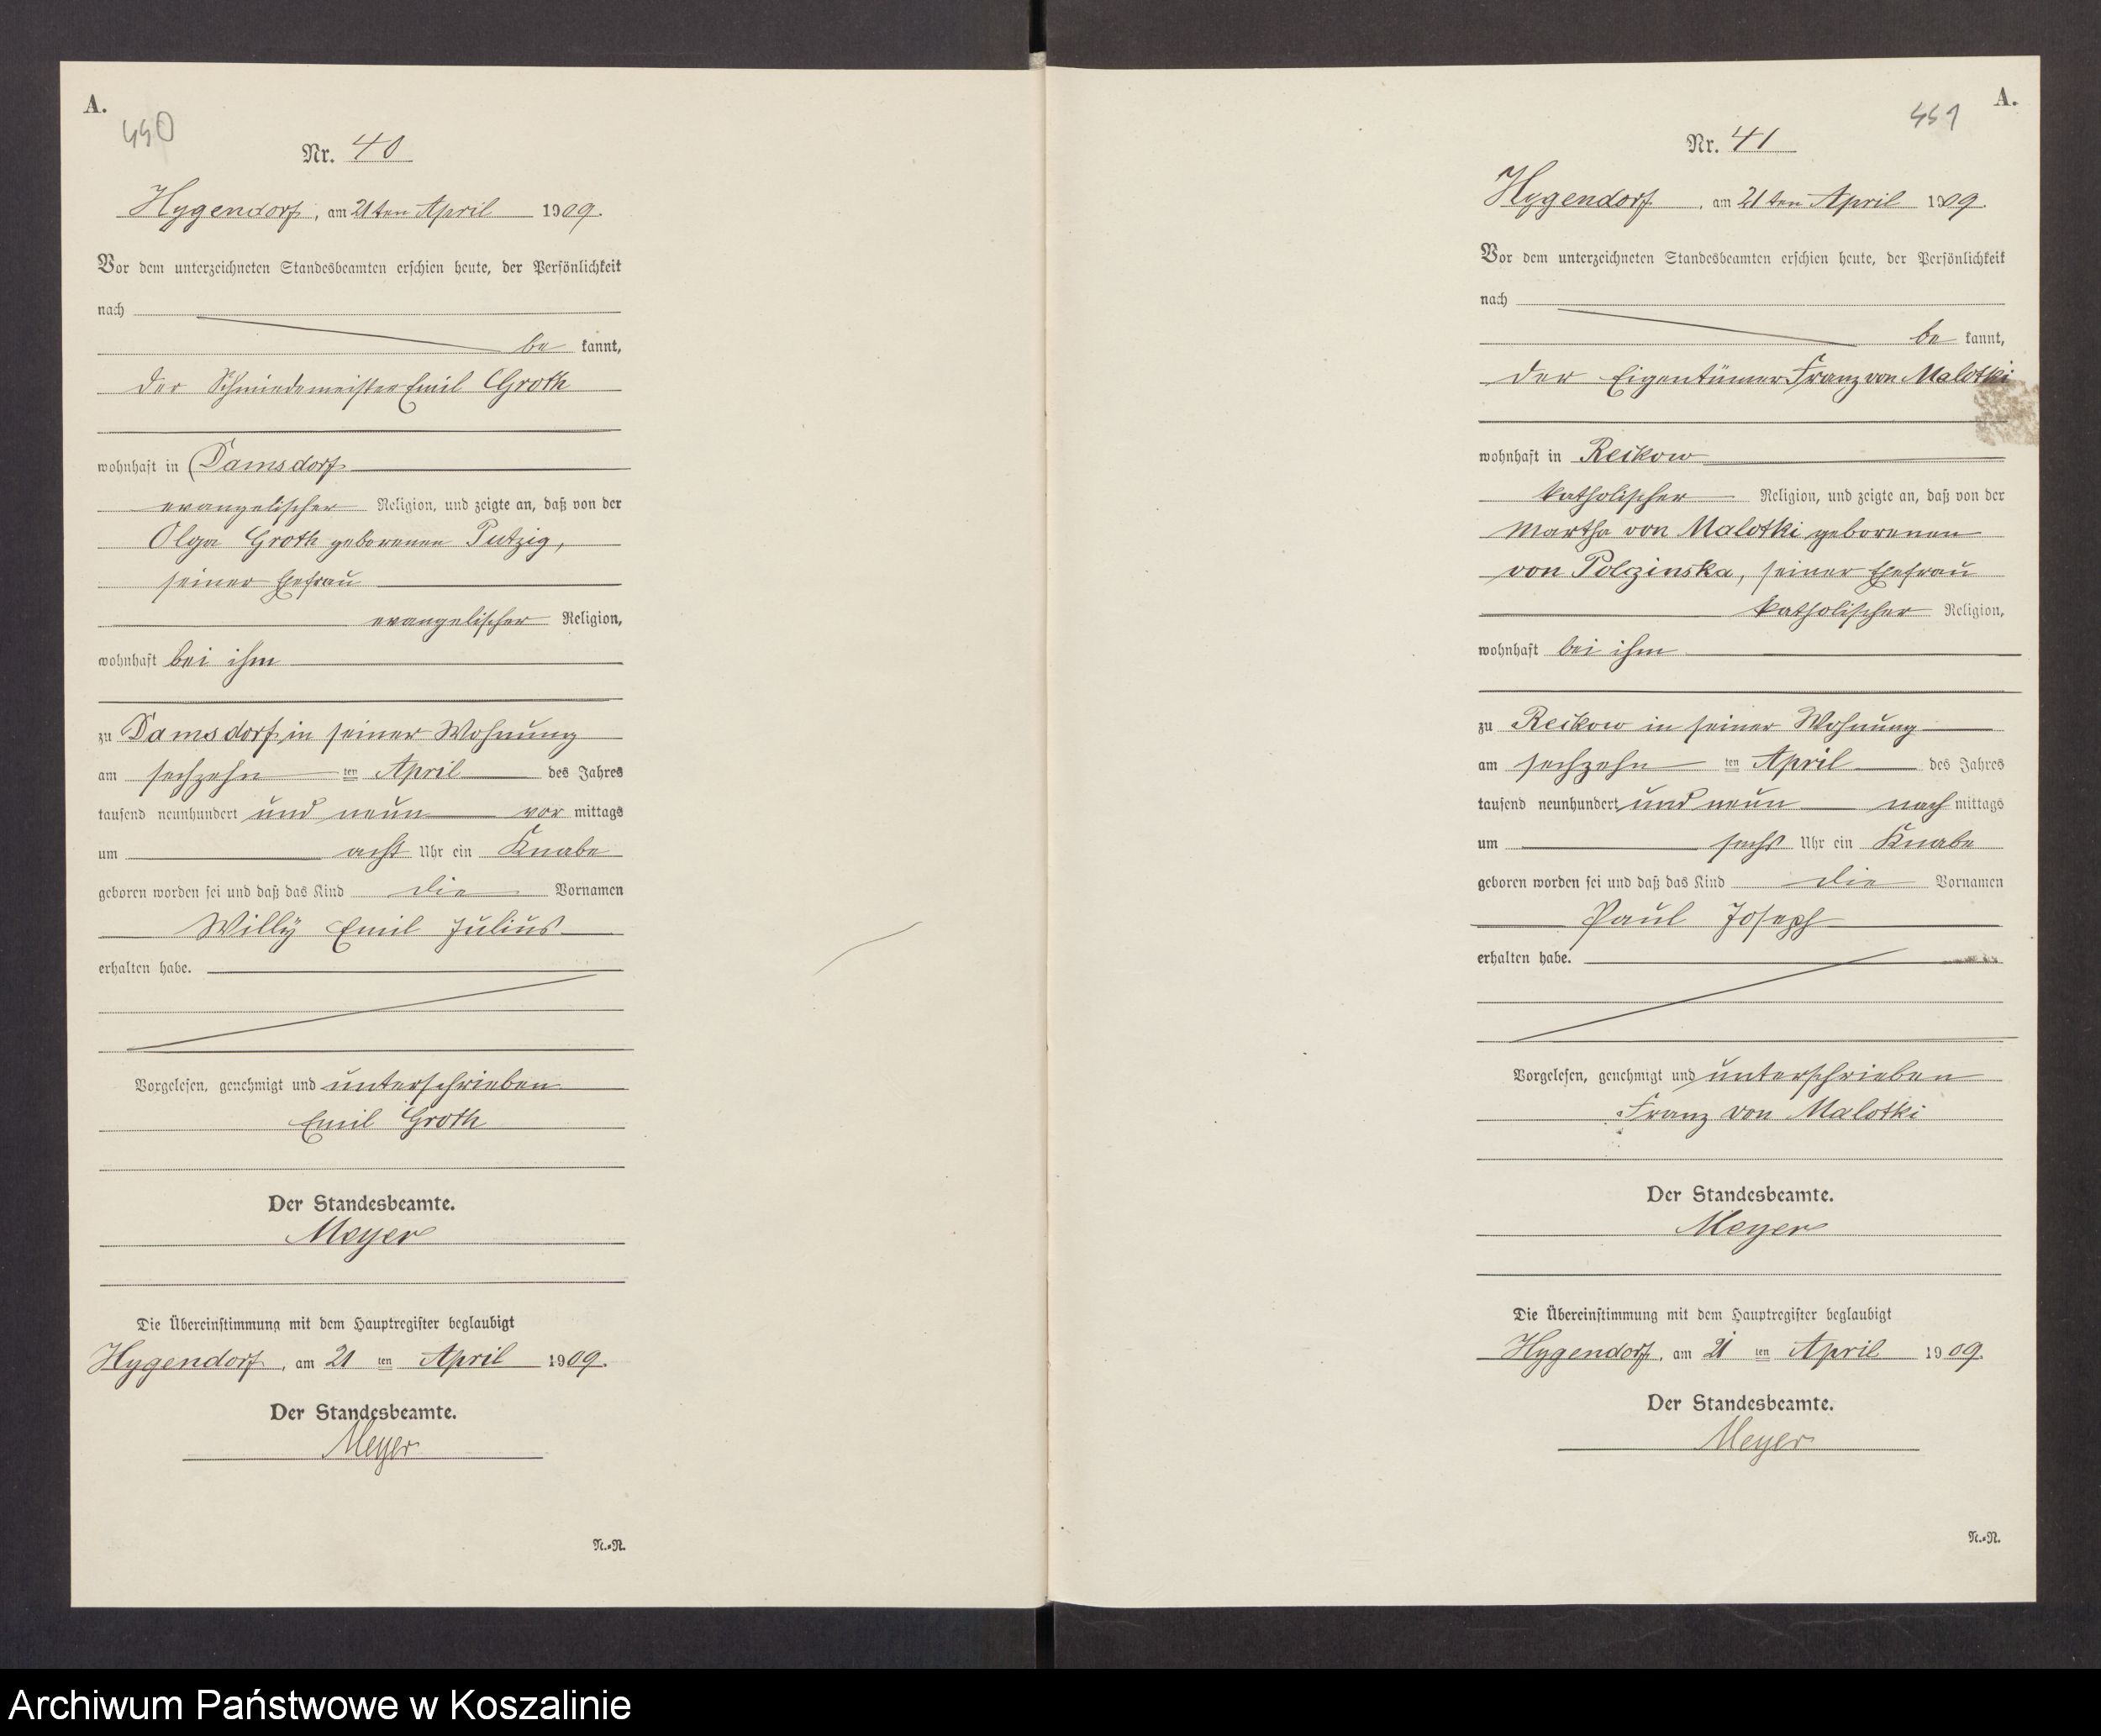 A.
450
Nr. 40
Hygendorf, am 21ten April 1909.
Vor dem unterzeichneten Standesbeamten erschien heute, der Persönlichkeit
nach
be kannt,
der Schmiedemeister Emil Groth
wohnhaft in Damsdorf
evangelischer Religion, und zeigte an, daß von der
Olga Groth geborenen Putzig,
seiner Ehefrau
evangelischer Religion,
wohnhaft bei ihm
zu Damsdorf in seiner Wohnung
am sechzehn ten April des Jahres
tausend neunhundert und neun vor mittags
um acht Uhr ein Knabe
geboren worden sei und daß das Kind die Vornamen
Willy Emil Julius
erhalten habe.
Vorgelesen, genehmigt und unterschrieben
Emil Groth
Der Standesbeamte.
Meyer
Die Übereinstimmung mit dem Hauptregister beglaubigt
Hygendorf, am 21 ten April 1909.
Der Standesbeamte.
Meyer
N.=R.
A.
451
Nr. 41
Hygendorf, am 21ten April 1909.
Vor dem unterzeichneten Standesbeamten erschien heute, der Persönlichkeit
nach
be kannt,
der Eigentümer Franz von Malotki
wohnhaft in Reikow
katholischer Religion, und zeigte an, daß von der
Martha von Malotki geborenen
von Polczinska, seiner Ehefrau
katholischer Religion,
wohnhaft bei ihm
zu Reikow in seiner Wohnung
am sechzehn ten April des Jahres
tausend neunhundert und neun nach mittags
um sechs Uhr ein Knabe
geboren worden sei und daß das Kind die Vornamen
Paul Joseph
erhalten habe.
Vorgelesen, genehmigt und unterschrieben
Franz von Malotki
Der Standesbeamte.
Meyer
Die Übereinstimmung mit dem Hauptregister beglaubigt
Hygendorf, am 21 ten April 1909.
Der Standesbeamte.
Meyer
N.=R.
Archiwum Państwowe w Koszalinie